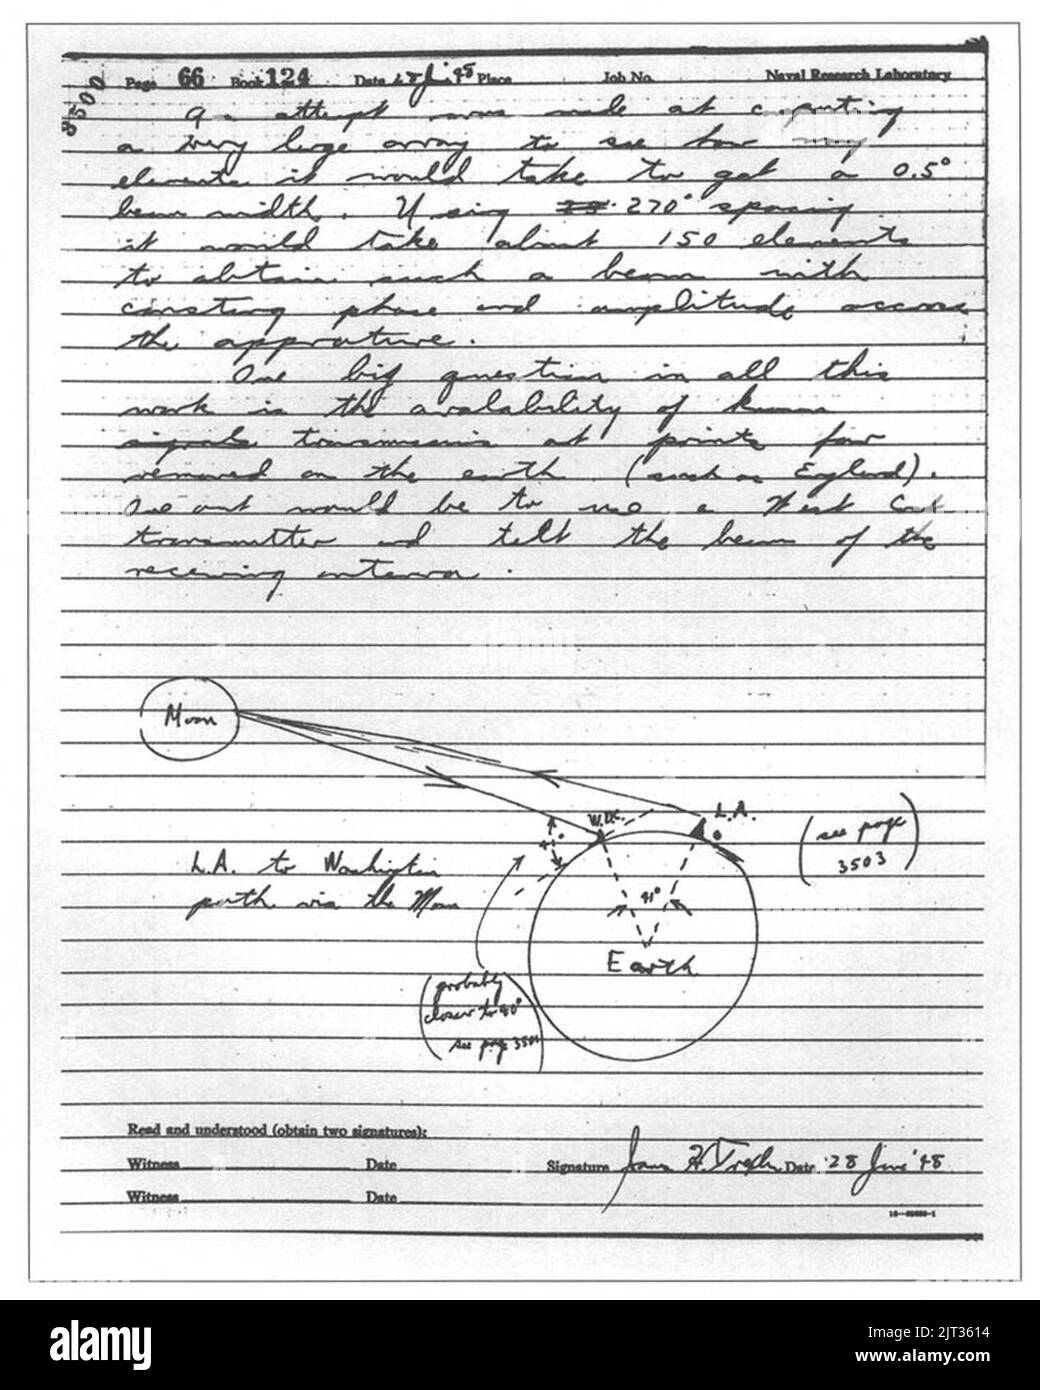 3500
Page 66 Book 124 Date 28 June '48 Place Job No. Naval Research Laboratory
An attempt was made at computing
a very large array to see how many
elements it would take to get a 0.5°
beam width. Using 270° spacing
it would take about 150 elements
to obtain such a beam with
phase and amplitude accross
the apprature.
One big question in all this
work is the avalability of known
signals transmissions at points far
removed on the earth (such as England).
One out would be to use a West Cost
transmitter and telt the beam of the
receiving antenna.
Moon
W.DC.
L.A.
(see page
3503)
L.A. to Washington
path via the Moon
41°
Earth
(probably
closer to 40°
see page 3501
Read and understood (obtain two signatures):
Witness Date Signature James H. Trexler Date 28 June '48
Witness Date
alamy
Image ID: 2JT3614
www.alamy.com